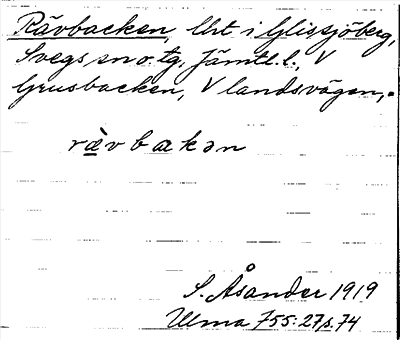 Rävbacken, lht i Glissjöberg,
Svegs sn o. tg, Jämtl. l., V
Grusbacken, V landsvägen.
rævbakən
S. Åsander 1919
Ulma 755:27 s. 74